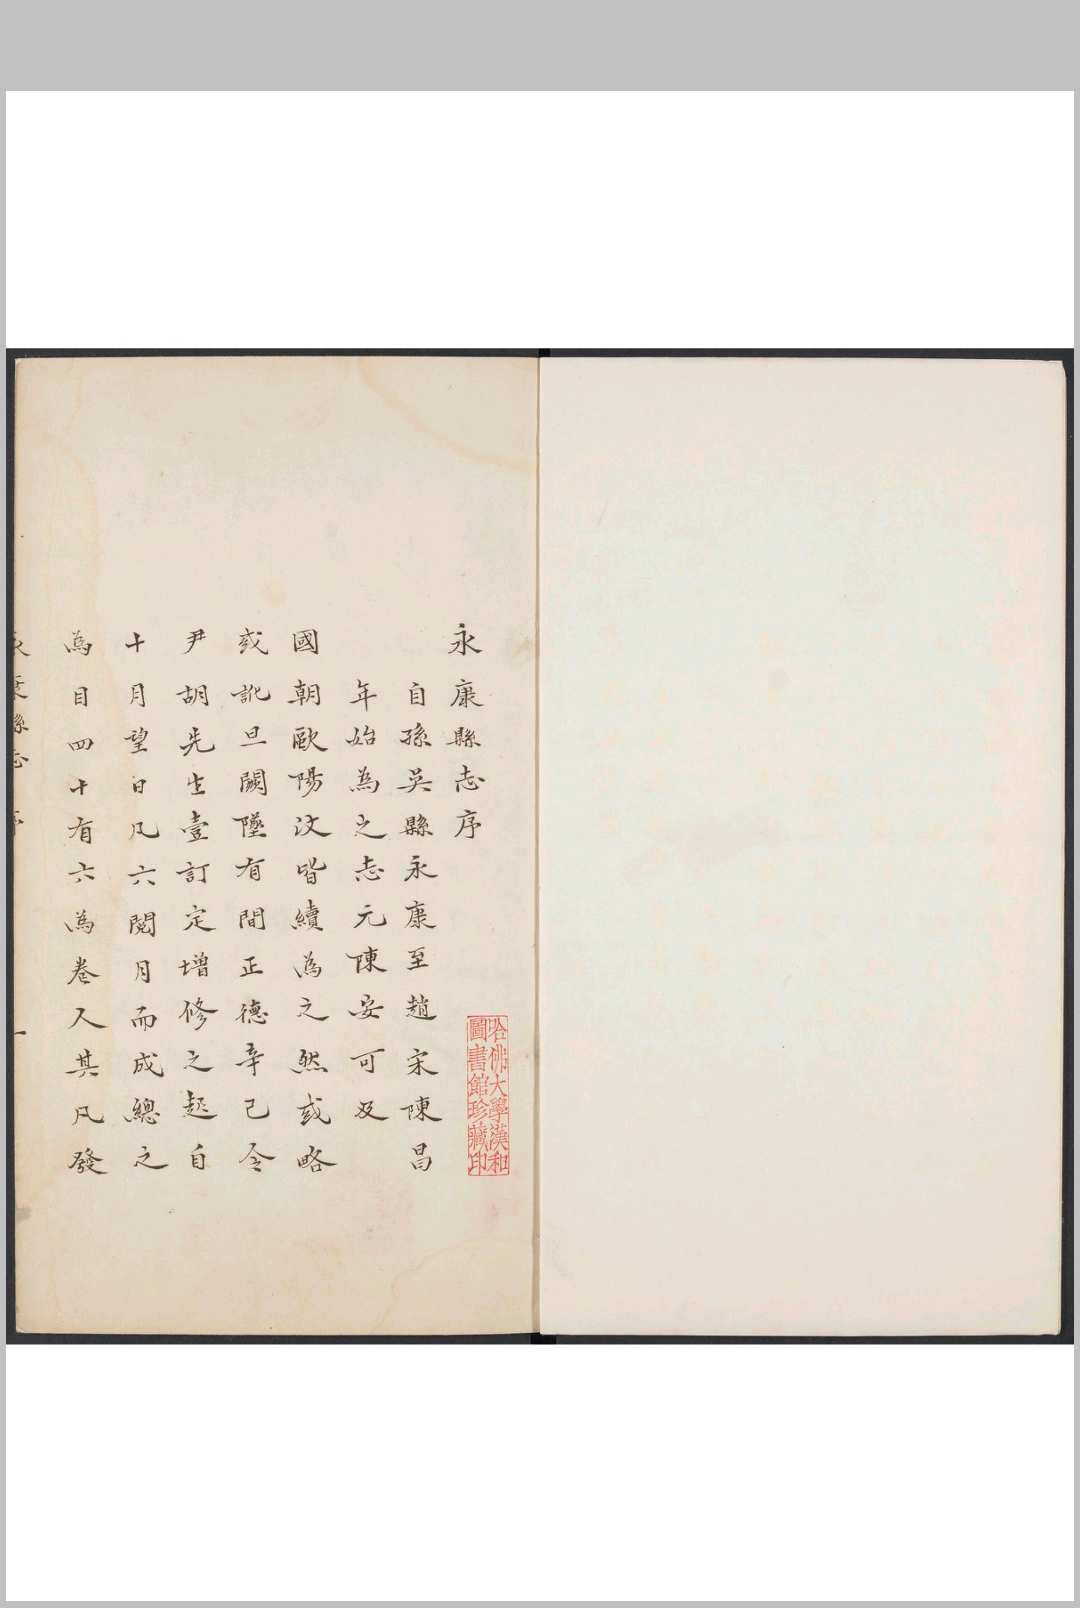 永康縣志序
自孫吳縣永康至趙宋陳昌
年始為之志元陳安可及
國朝歐陽汶皆續為之然或略
或訛且闕墜有間正德辛己令
尹胡先生壹訂定增修之起自
十月望日凡六閱月而成總之
為目四十有六為卷八其凡發
永康縣志 序 一
哈佛大學漢和
圖書館珍藏印